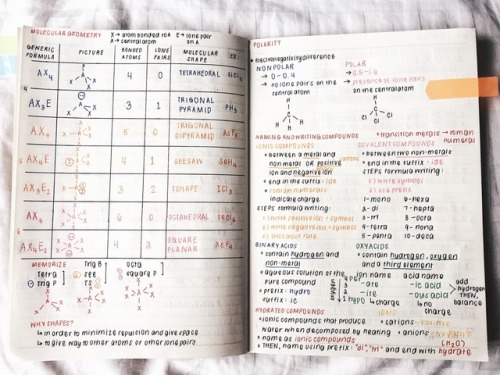 MOLECULAR GEOMETRY
X → atom bonded to A
E → lone pair on A
A → central atom
GENERIC FORMULA PICTURE BONDED ATOMS LONE PAIRS MOLECULAR SHAPE EX.
AX4 4 0 TETRAHEDRAL
AX3E 3 1 TRIGONAL PYRAMID PH3
5 0 TRIGONAL BIPYRAMID
4 1 SEESAW
AX3E2 3 2 T SHAPE
6 0 OCTAHEDRAL
AX4E2 4 2 SQUARE PLANAR XeF4
MEMORIZE
tetra
trig p
trig B
see
TS
octa
square p
WHY SHAPES?
↳ in order to minimize repulsion and give space
↳ to give way to other atoms or other lone pairs
POLARITY
electronegativity difference
NONPOLAR
→ 0-0.4
→ no lone pairs on the central atom
POLAR
→ presence of lone pairs on the central atom
H
H C H
H
H
C
Cl Cl
Cl
NAMING AND WRITING COMPOUNDS
* transition metals → roman numeral
IONIC COMPOUNDS
• between a metal and non-metal or positive ion and negative ion
• end in the suffix -ide
• roman numerals indicate charge
STEPS formula writing:
COVALENT COMPOUNDS
• between two non-metals
• end in the suffix -ide
STEPS formula writing:
1) write symbols
2) use prefix
1-mono 6-hexa
2-di 7-hepta
3-tri 8-octa
4-tetra 9-nona
5-penta 10-deca
BINARY ACIDS
• contain hydrogen and non-metal
• aqueous solution of the pure compound
• prefix: hydro
suffix: ic
OXYACIDS
• contain hydrogen, oxygen and a third element
ion name acid name
oxygen
per
-ate -ic acid
-ite -ous acid
hypo
add hydrogen THEN, balance
↳ charge ↳ no charge
HYDRATED COMPOUNDS
• ionic compounds that produce water when decomposed by heating
• name as ionic compounds
• THEN, name using prefix "di", "tri" and end with hydrate
IONS
+ cations
- anions
(H2O)